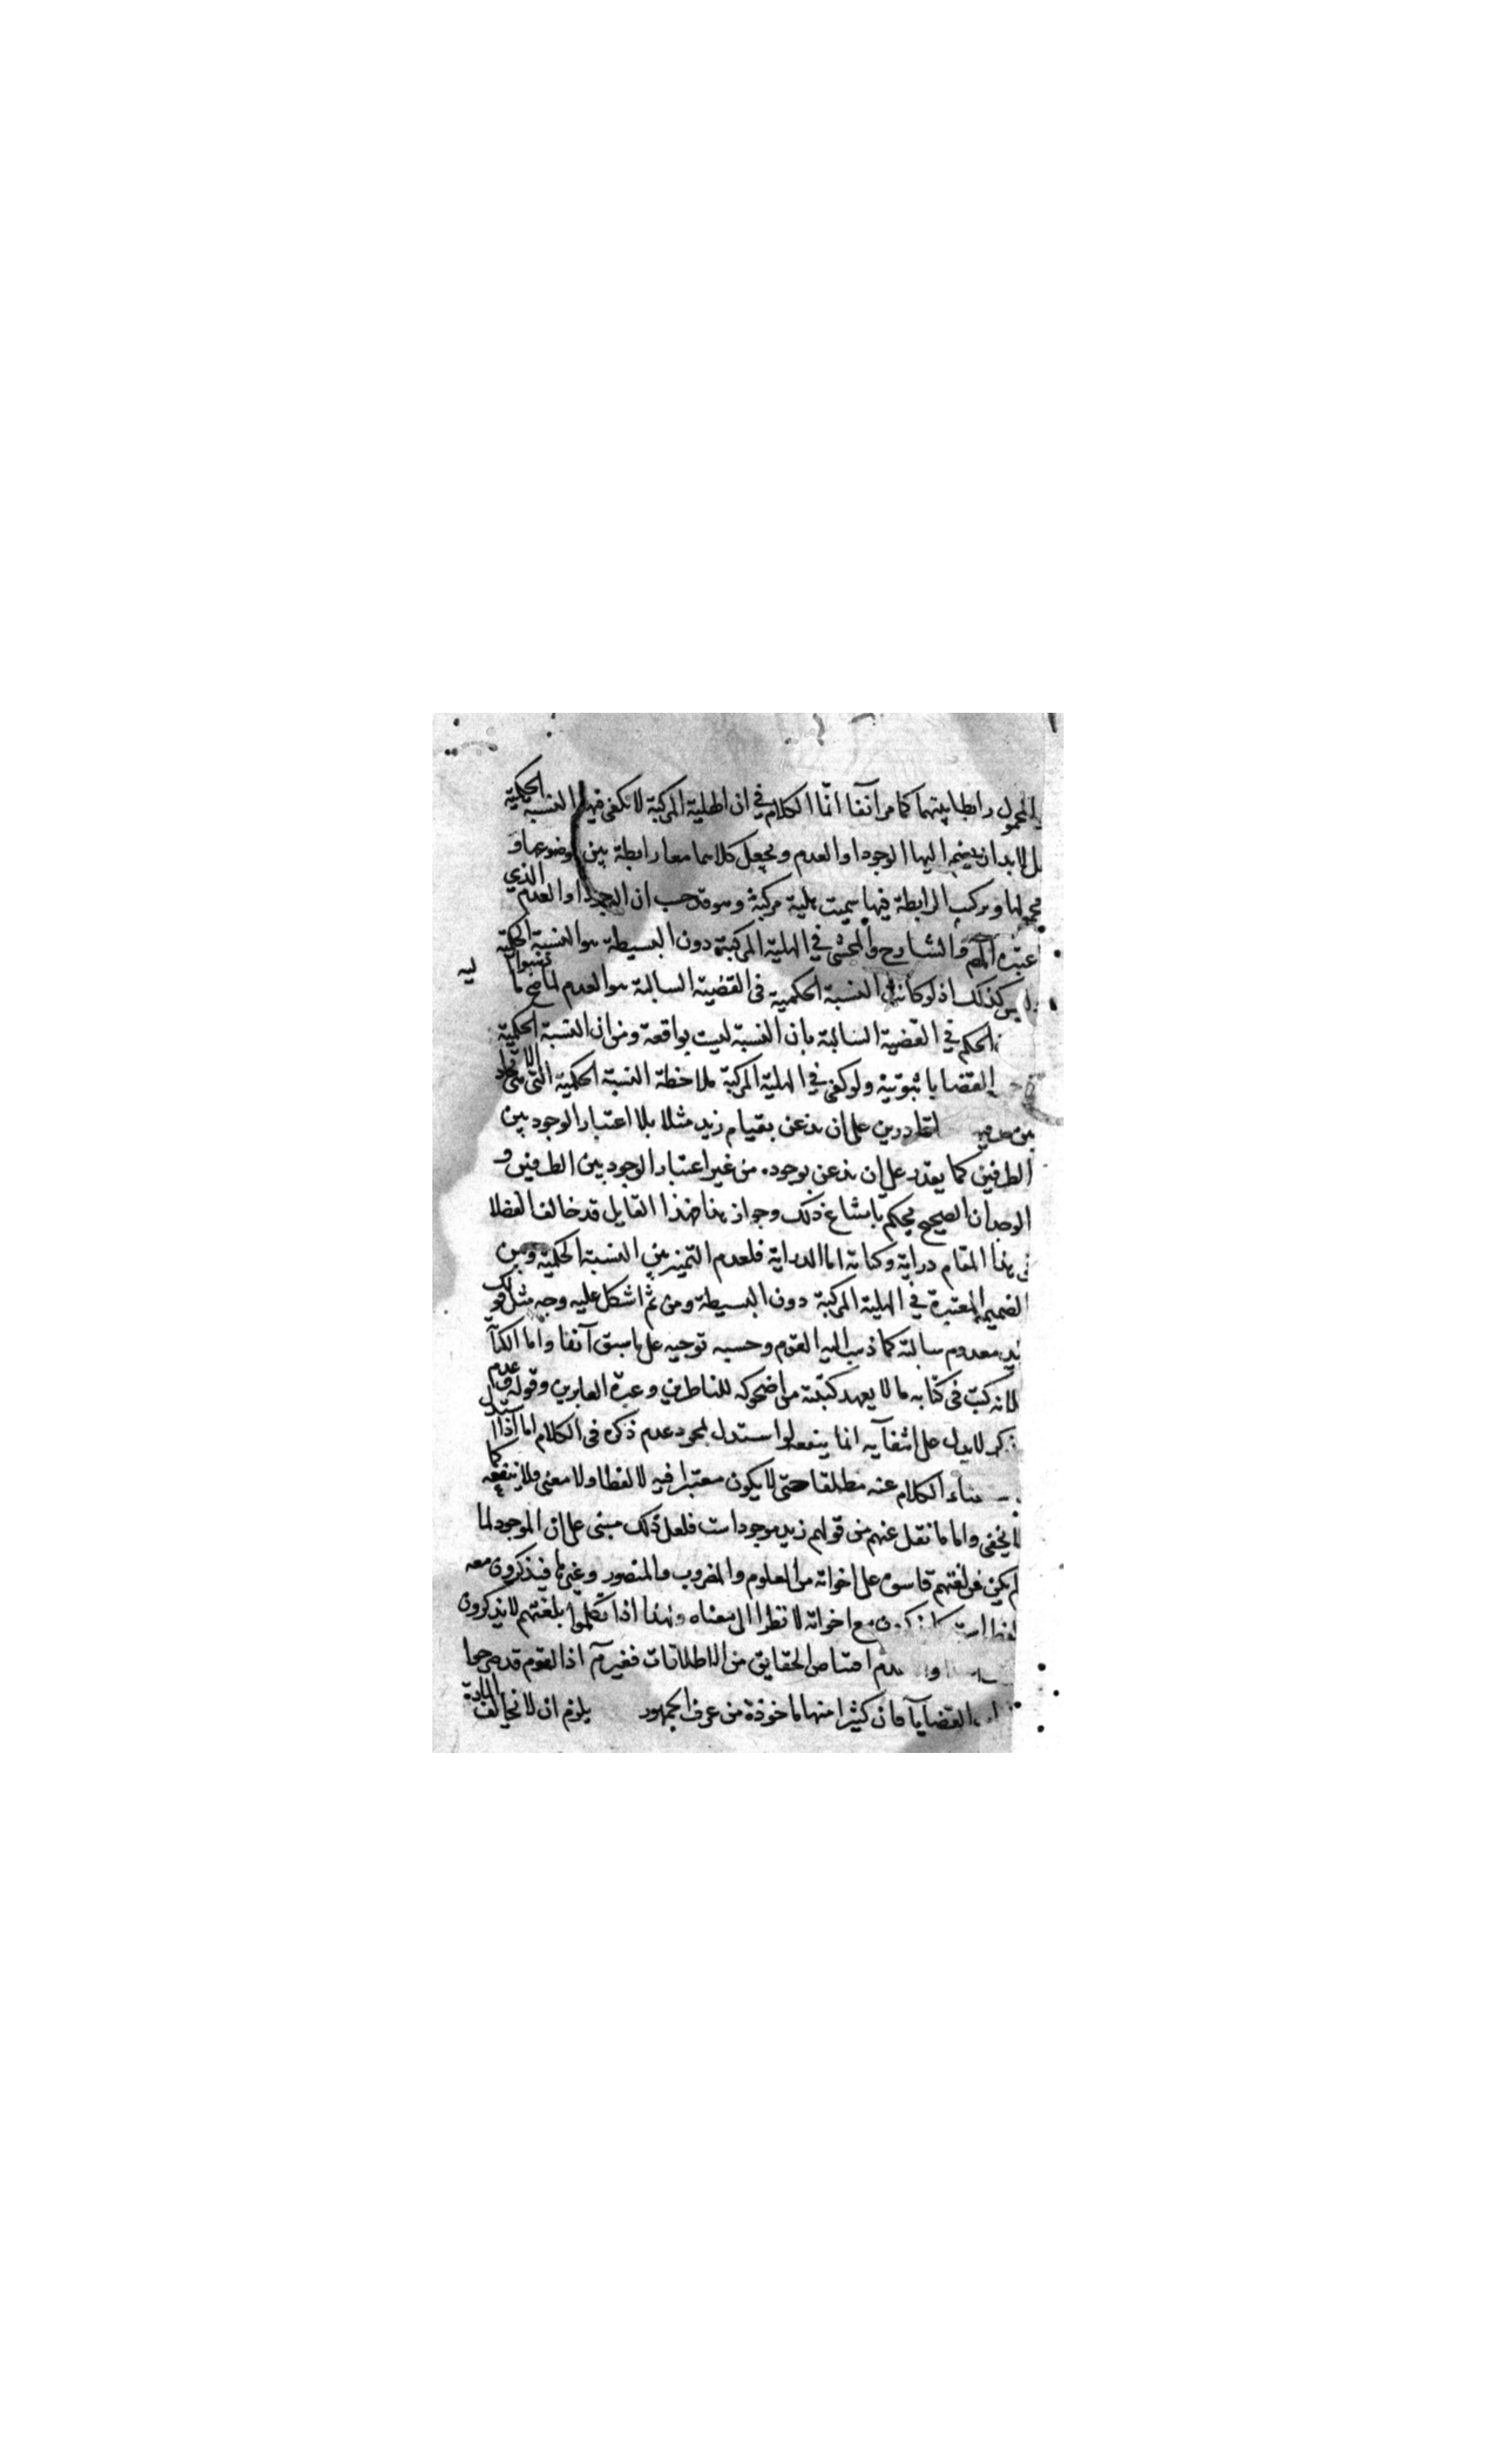 المحمول رابطا بينهما كما مر آنفا انما الكلام في ان الهلية المركبة لا يكفى فيها النسبة الحكمية
بل لابد ان ينضم اليها الوجود او العدم ويجعل كلاهما معا رابطة بين موضوعها و
محمولها وبتركب الرابطة فيها سميت هلية مركبة وهو قد حسب ان الوجود او العدم الذي
اعتبره المصـ والشارح والمحشى في الهلية المركبة دون البسيطة هو النسبة الحكمية
وليس كذلك اذ لو كانت النسبة الحكمية في القضية السالبة هو العدم لما صح ما
الحكم في القضية السالبة بان النسبة ليست بواقعة ومن ان النسبة الحكمية
القضايا ثبوتية ولو كفى في الهلية المركبة ملاحظة النسبة الحكمية التى الاتحاد
بين لقادرين على ان نذعن بقيام زيد مثلا بلا اعتبار الوجود بين
الطرفين كما يقدر على ان نذعن بوجوده من غير اعتبار الوجود بين الطرفين و
الوجدان الصحيح يحكم بامتناع ذلك وجواز هذا فهذا القايل قد خالف الفضلا
في هذا المقام دراية وكتابة اما الدراية فلعدم التميز بين النسبة الحكمية وبين
الضميمة المعتبرة في الهلية المركبة دون البسيطة ومن ثم اشكل عليه وجه مثل قولك
زيد معدوم سالبة كما ذهب اليه القوم وحسبه توجيه على ما سبق آنفا واما الكتابة
فلانه كتب في كتابه ما لا يعهد كتبته من اضحوكه للناظرين وعبرة العابرين وقوله وعدم
ذكره لا يدل على انتفآيه انما ينفعه لو استدل بمجرد عدم ذكره في الكلام اما اذا استدل
الكلام عنه مطلقا حتى لا يكون معتبرا فيه لا لفظا ولا معنى فلا ينفعه كما
لا يخفى واما ما نقل عنهم من قولهم زيد موجود است فلعل ذلك مبنى على ان الموجود لما
لم يكن من لغتهم قاسوه على اخواته من المعلوم والمضروب والمنصور وغيرها فيذكرون معه
لفظ است كما يذكرون مع اخواته لا نظرا الى معناه ولهذا اذا تكلموا بلغتهم لا يذكرون
عدم اقتناص الحقايق من الاطلاقات فغير مآ اذ القوم قد صرحوا
القضايا فان كثيرا منها ماخوذة من عرف الجمهور يلزم ان لا نخالف المادة